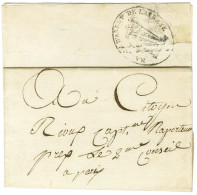 DE L'A
Au Citoyen
Rioux Capt.ne Raporteur
pres Le 2.me Conseil
a paris